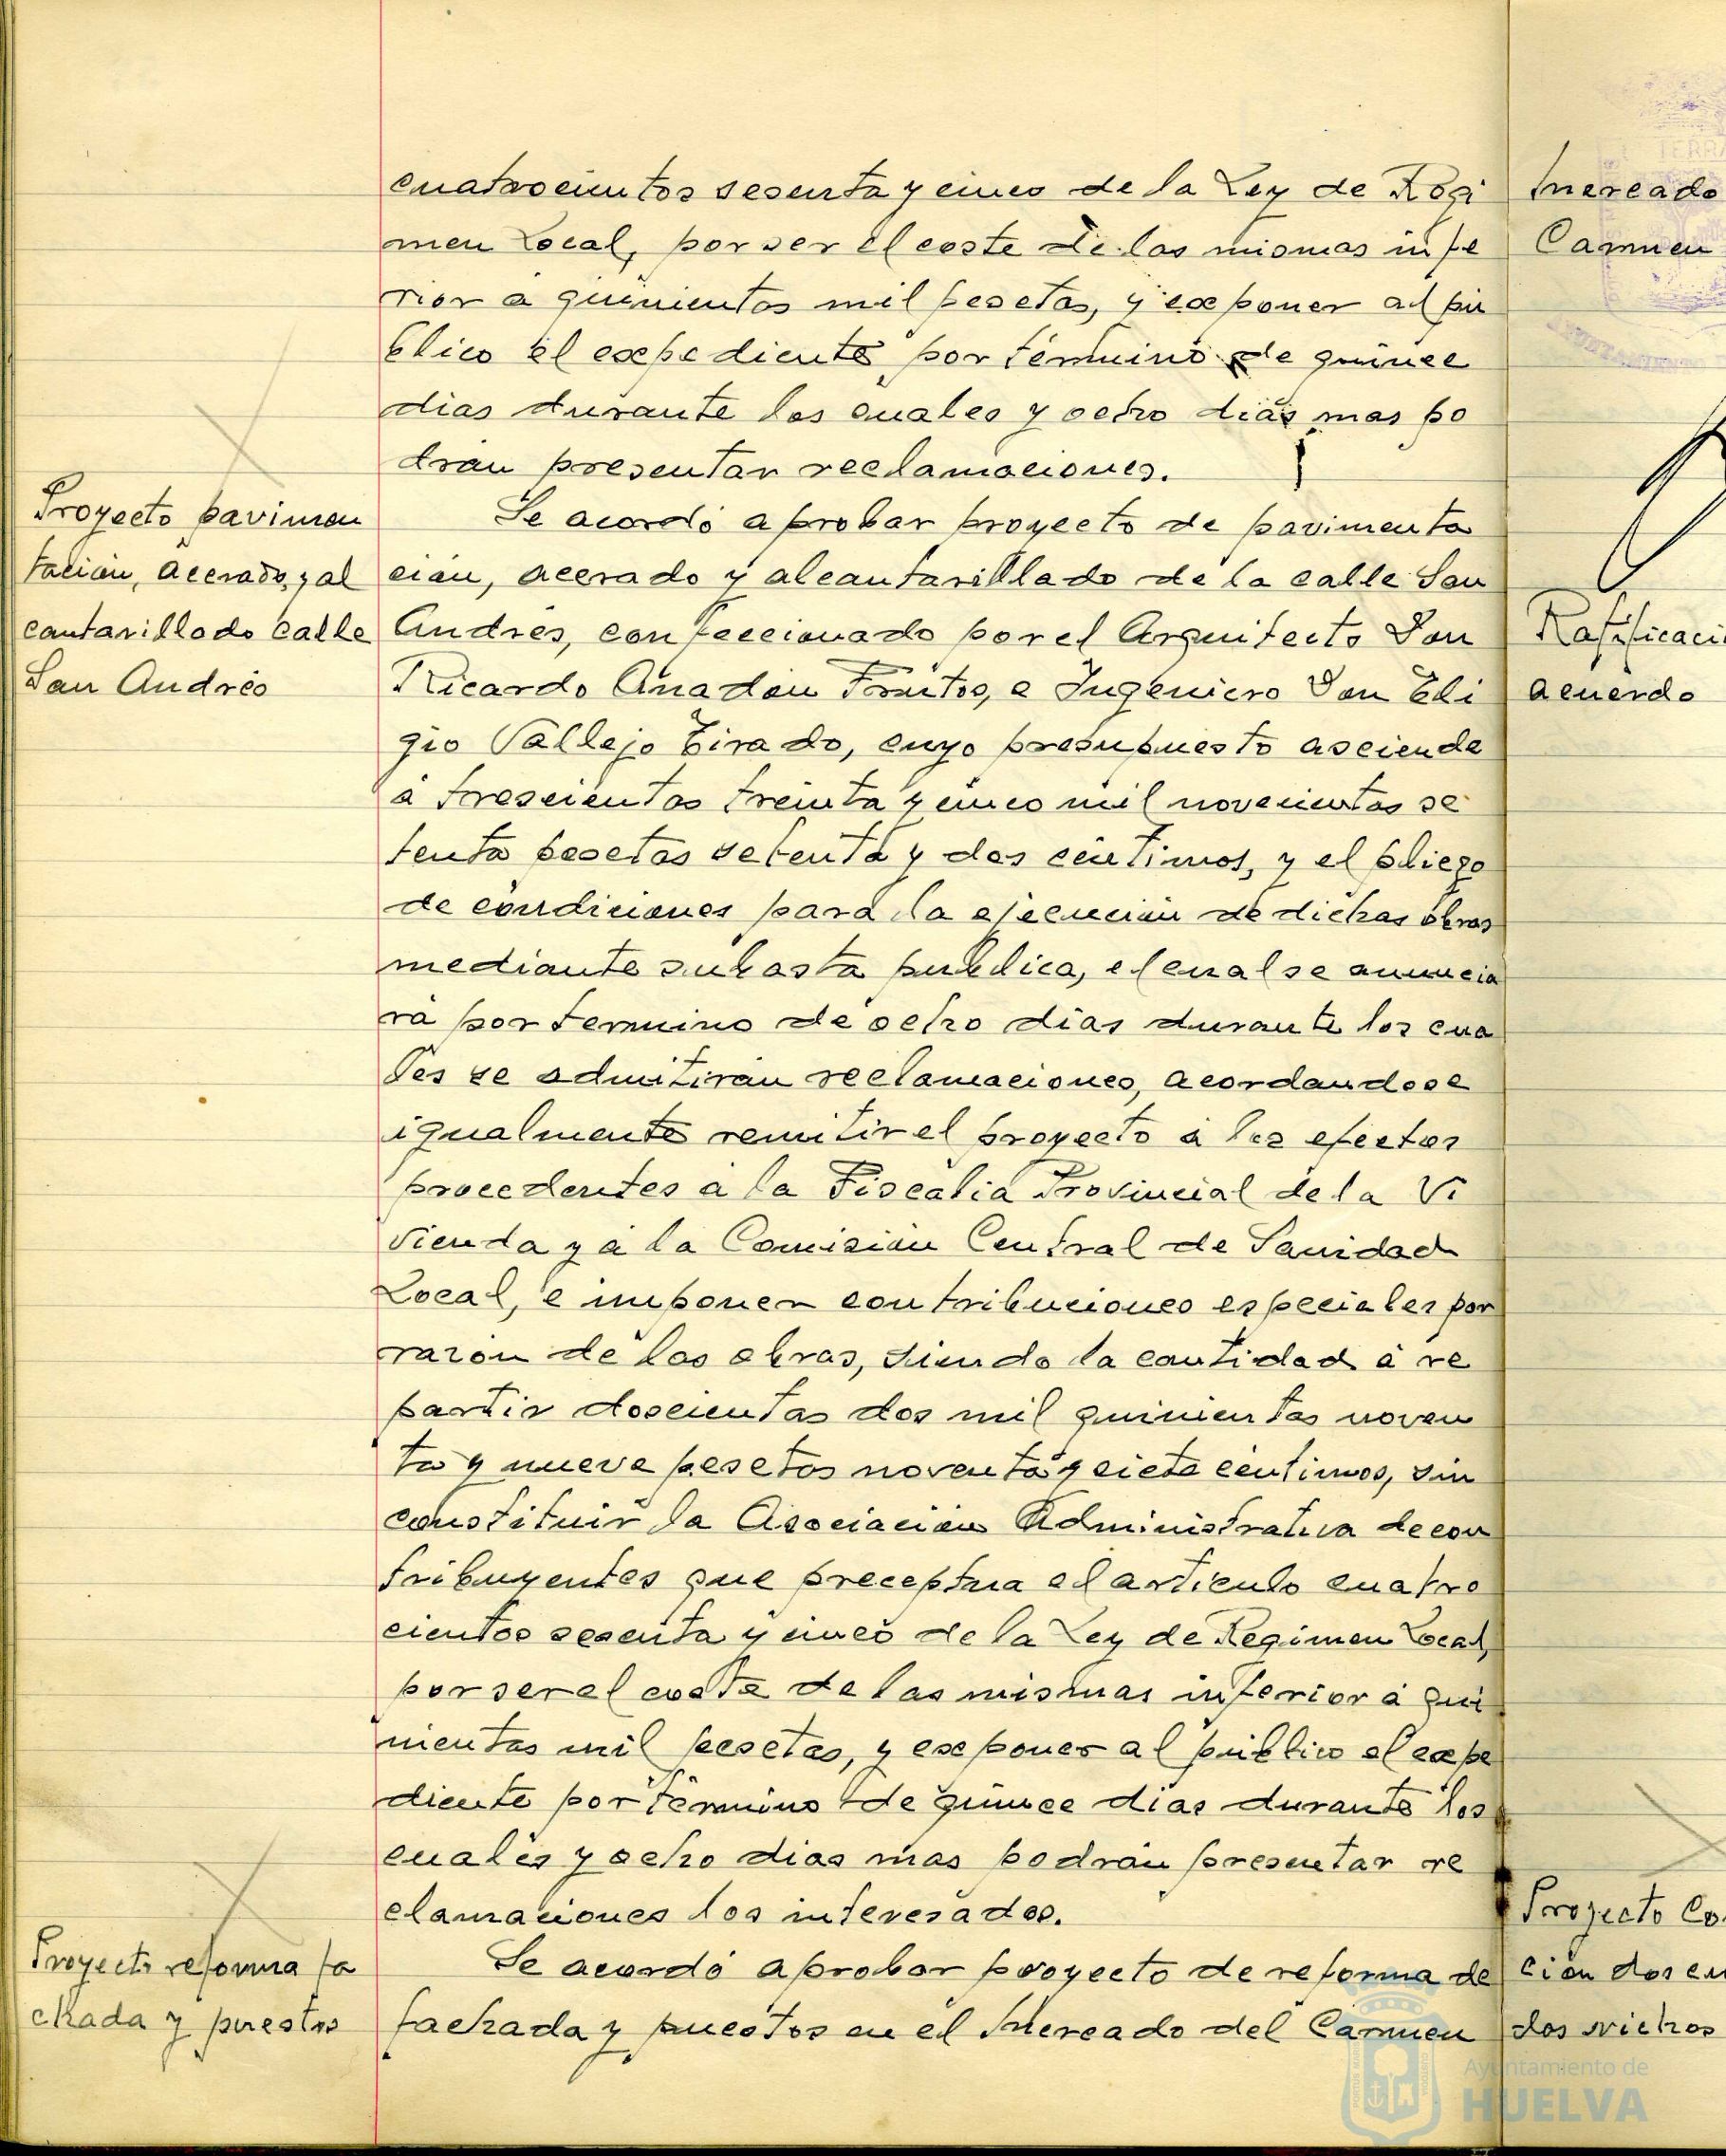 cuatrocientos sesenta y cinco de la Ley de Regi
men Local, por ser el coste de las mismas infe
rior a quinientas mil pesetas, y exponer al pú
blico el expediente por término de quince
dias durante los cuales y ocho dias mas po
drán presentar reclamaciones.
Proyecto pavimen
tación, acerado y al
cantarillado calle
San Andrés
Se acordó aprobar proyecto de pavimenta
ción, acerado y alcantarillado de la calle San
Andrés, confeccionado por el Arquitecto Don
Ricardo Anadón Frutos, e Ingeniero Don Eli
gio Vallejo Tirado, cuyo presupuesto asciende
á trescientas treinta y cinco mil novecientas se
tenta pesetas setenta y dos céntimos, y el pliego
de condiciones para la ejecución de dichas obras
mediante subasta publica, el cual se anuncia
rá por termino de ocho dias durante los cua
les se admitiran reclamaciones, acordandose
igualmente remitir el proyecto á los efectos
procedentes a la Fiscalia Provincial de la Vi
vienda y á la Comisión Central de Sanidad
Local, e imponer contribuciones especiales por
razón de las obras, siendo la cantidad á re
partir doscientas dos mil quinientas noven
ta y nueve pesetas noventa y siete céntimos, sin
constituir la Asociación Administrativa de con
tribuyentes que preceptua el articulo cuatro
cientos sesenta y cinco de la Ley de Regimen Local,
por ser el coste de las mismas inferior á qui
nientas mil pesetas, y exponer al público el expe
diente por término de quince dias durante los
cuales y ocho dias mas podrán presentar re
clamaciones los interesados.
Proyecto reforma fa
chada y puestos
Se acordó aprobar proyecto de reforma de
fachada y puestos en el Mercado del Carmen
Mercado
Carmen
Ratificaci
acuerdo
Proyecto Co
ción dos cu
dos nichos
Ayuntamiento de
HUELVA